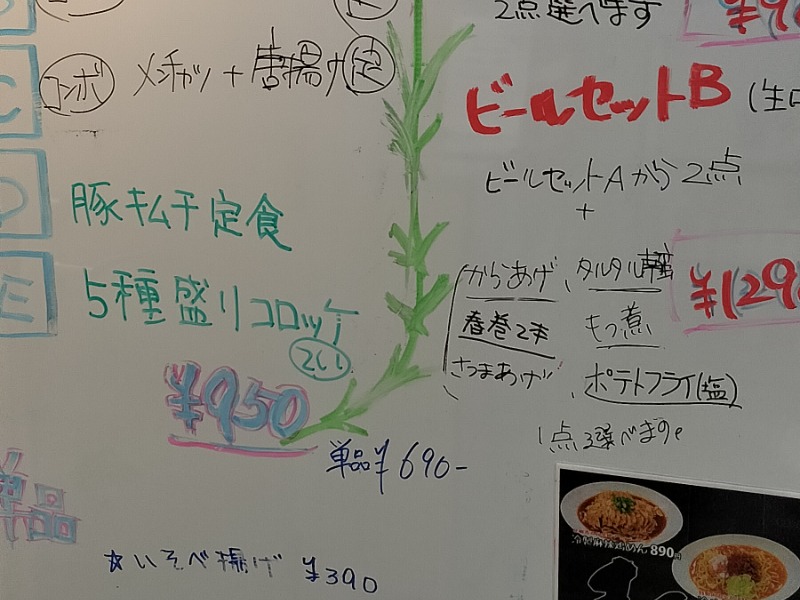 コンボ メンチカツ + 唐揚げ定
豚キムチ定食
5種盛りコロッケ
¥950
単品¥690-
単品
☆いそべ揚げ ¥390
2点選べます
ビールセットB
ビールセットAから2点
+
からあげ、タルタル
春巻2本 もつ煮
さつまあげ、ポテトフライ(塩)
1点選べます。
¥129
890円